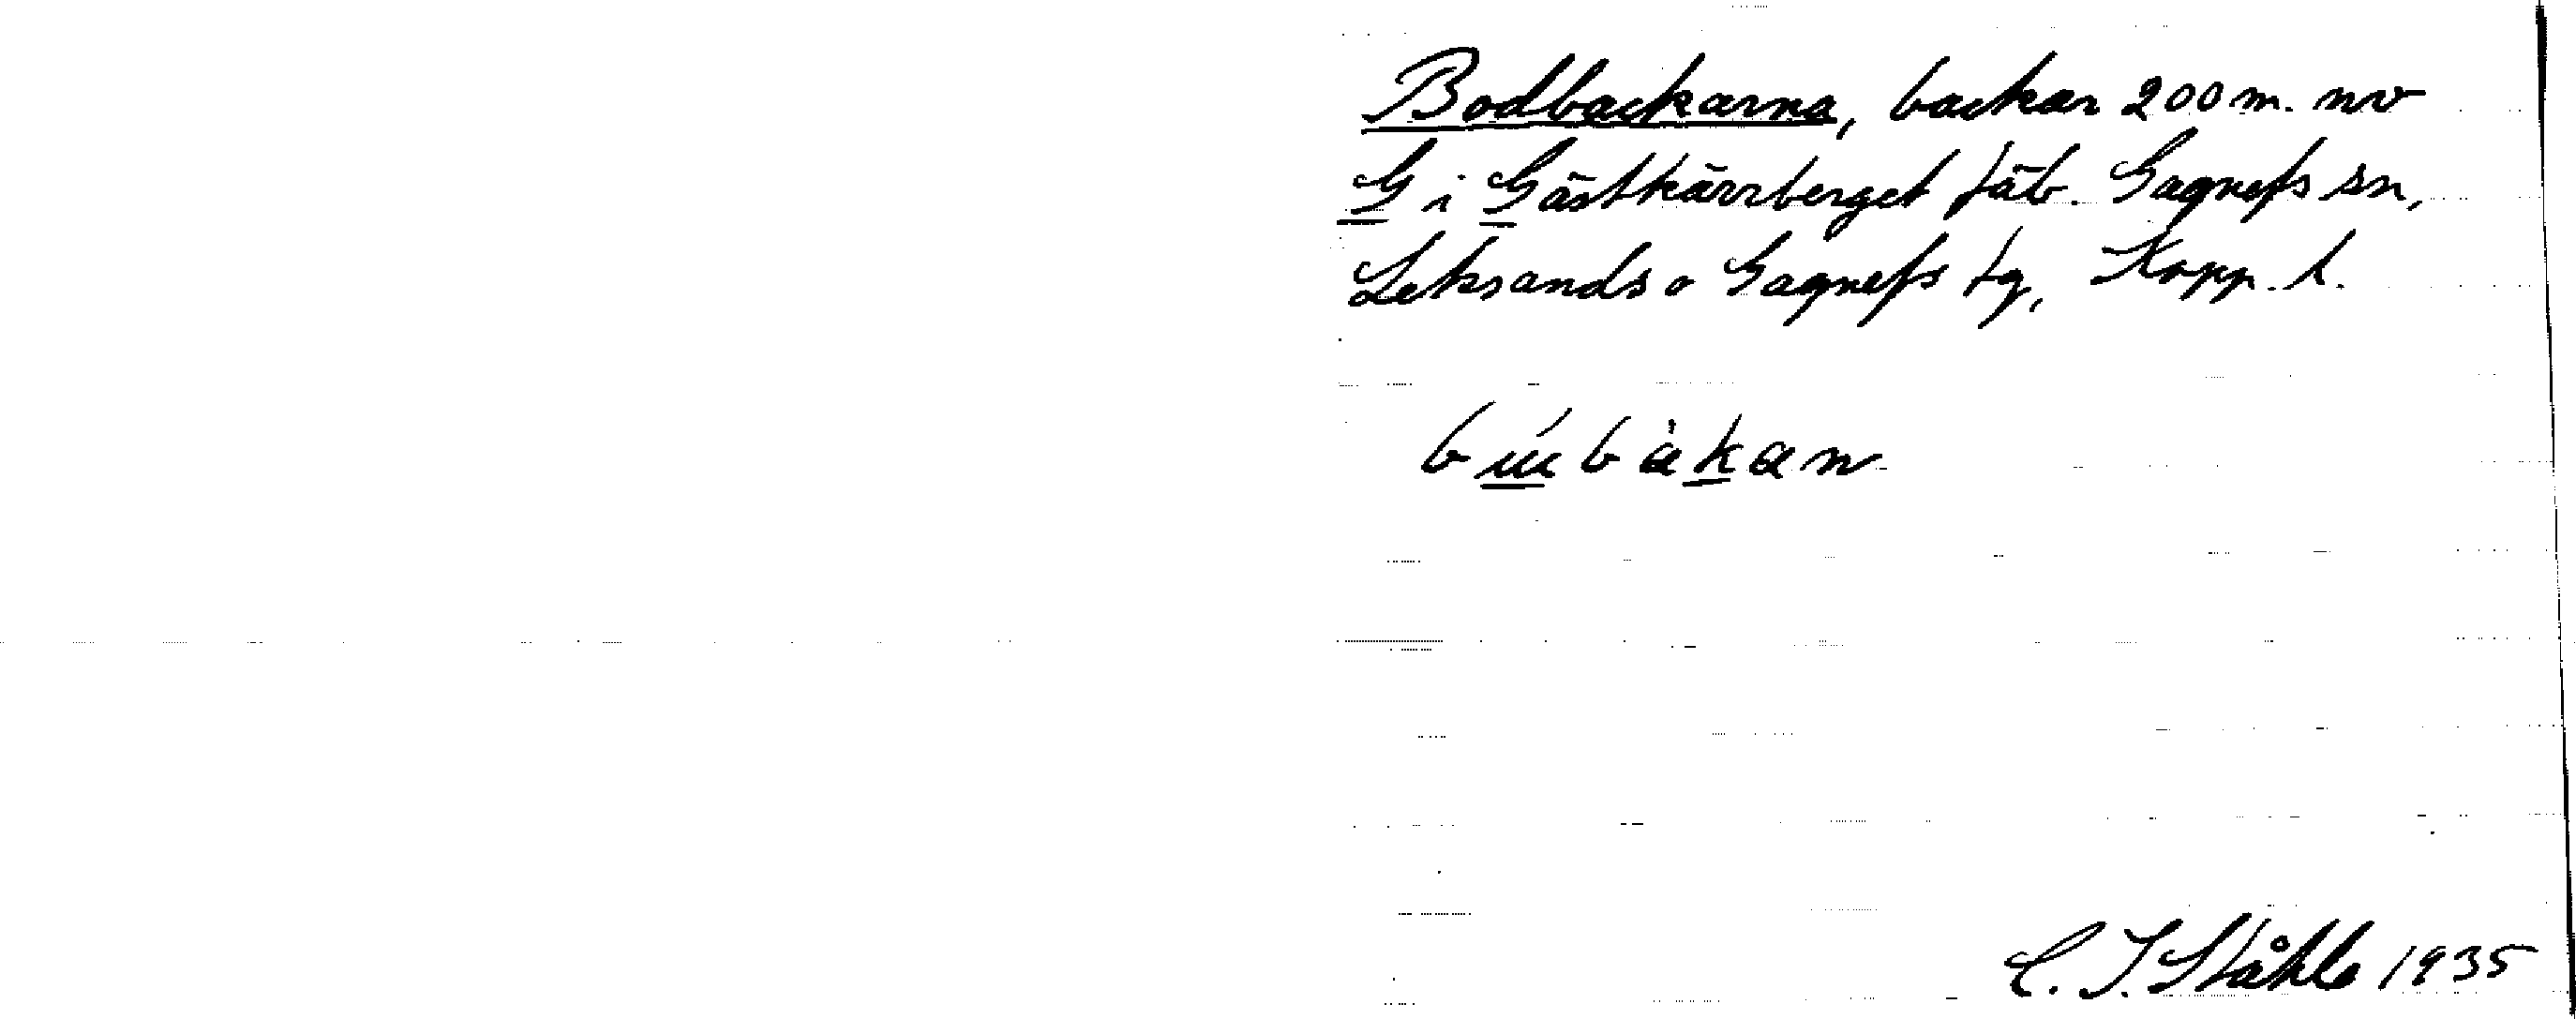 Bodbackarna, backar 200 m. nv
G i Gästkärrberget fäb. Gagnefs sn,
Leksands o Gagnefs tg, Kopp. l.
búbàkan
C. I. Ståhle 1935